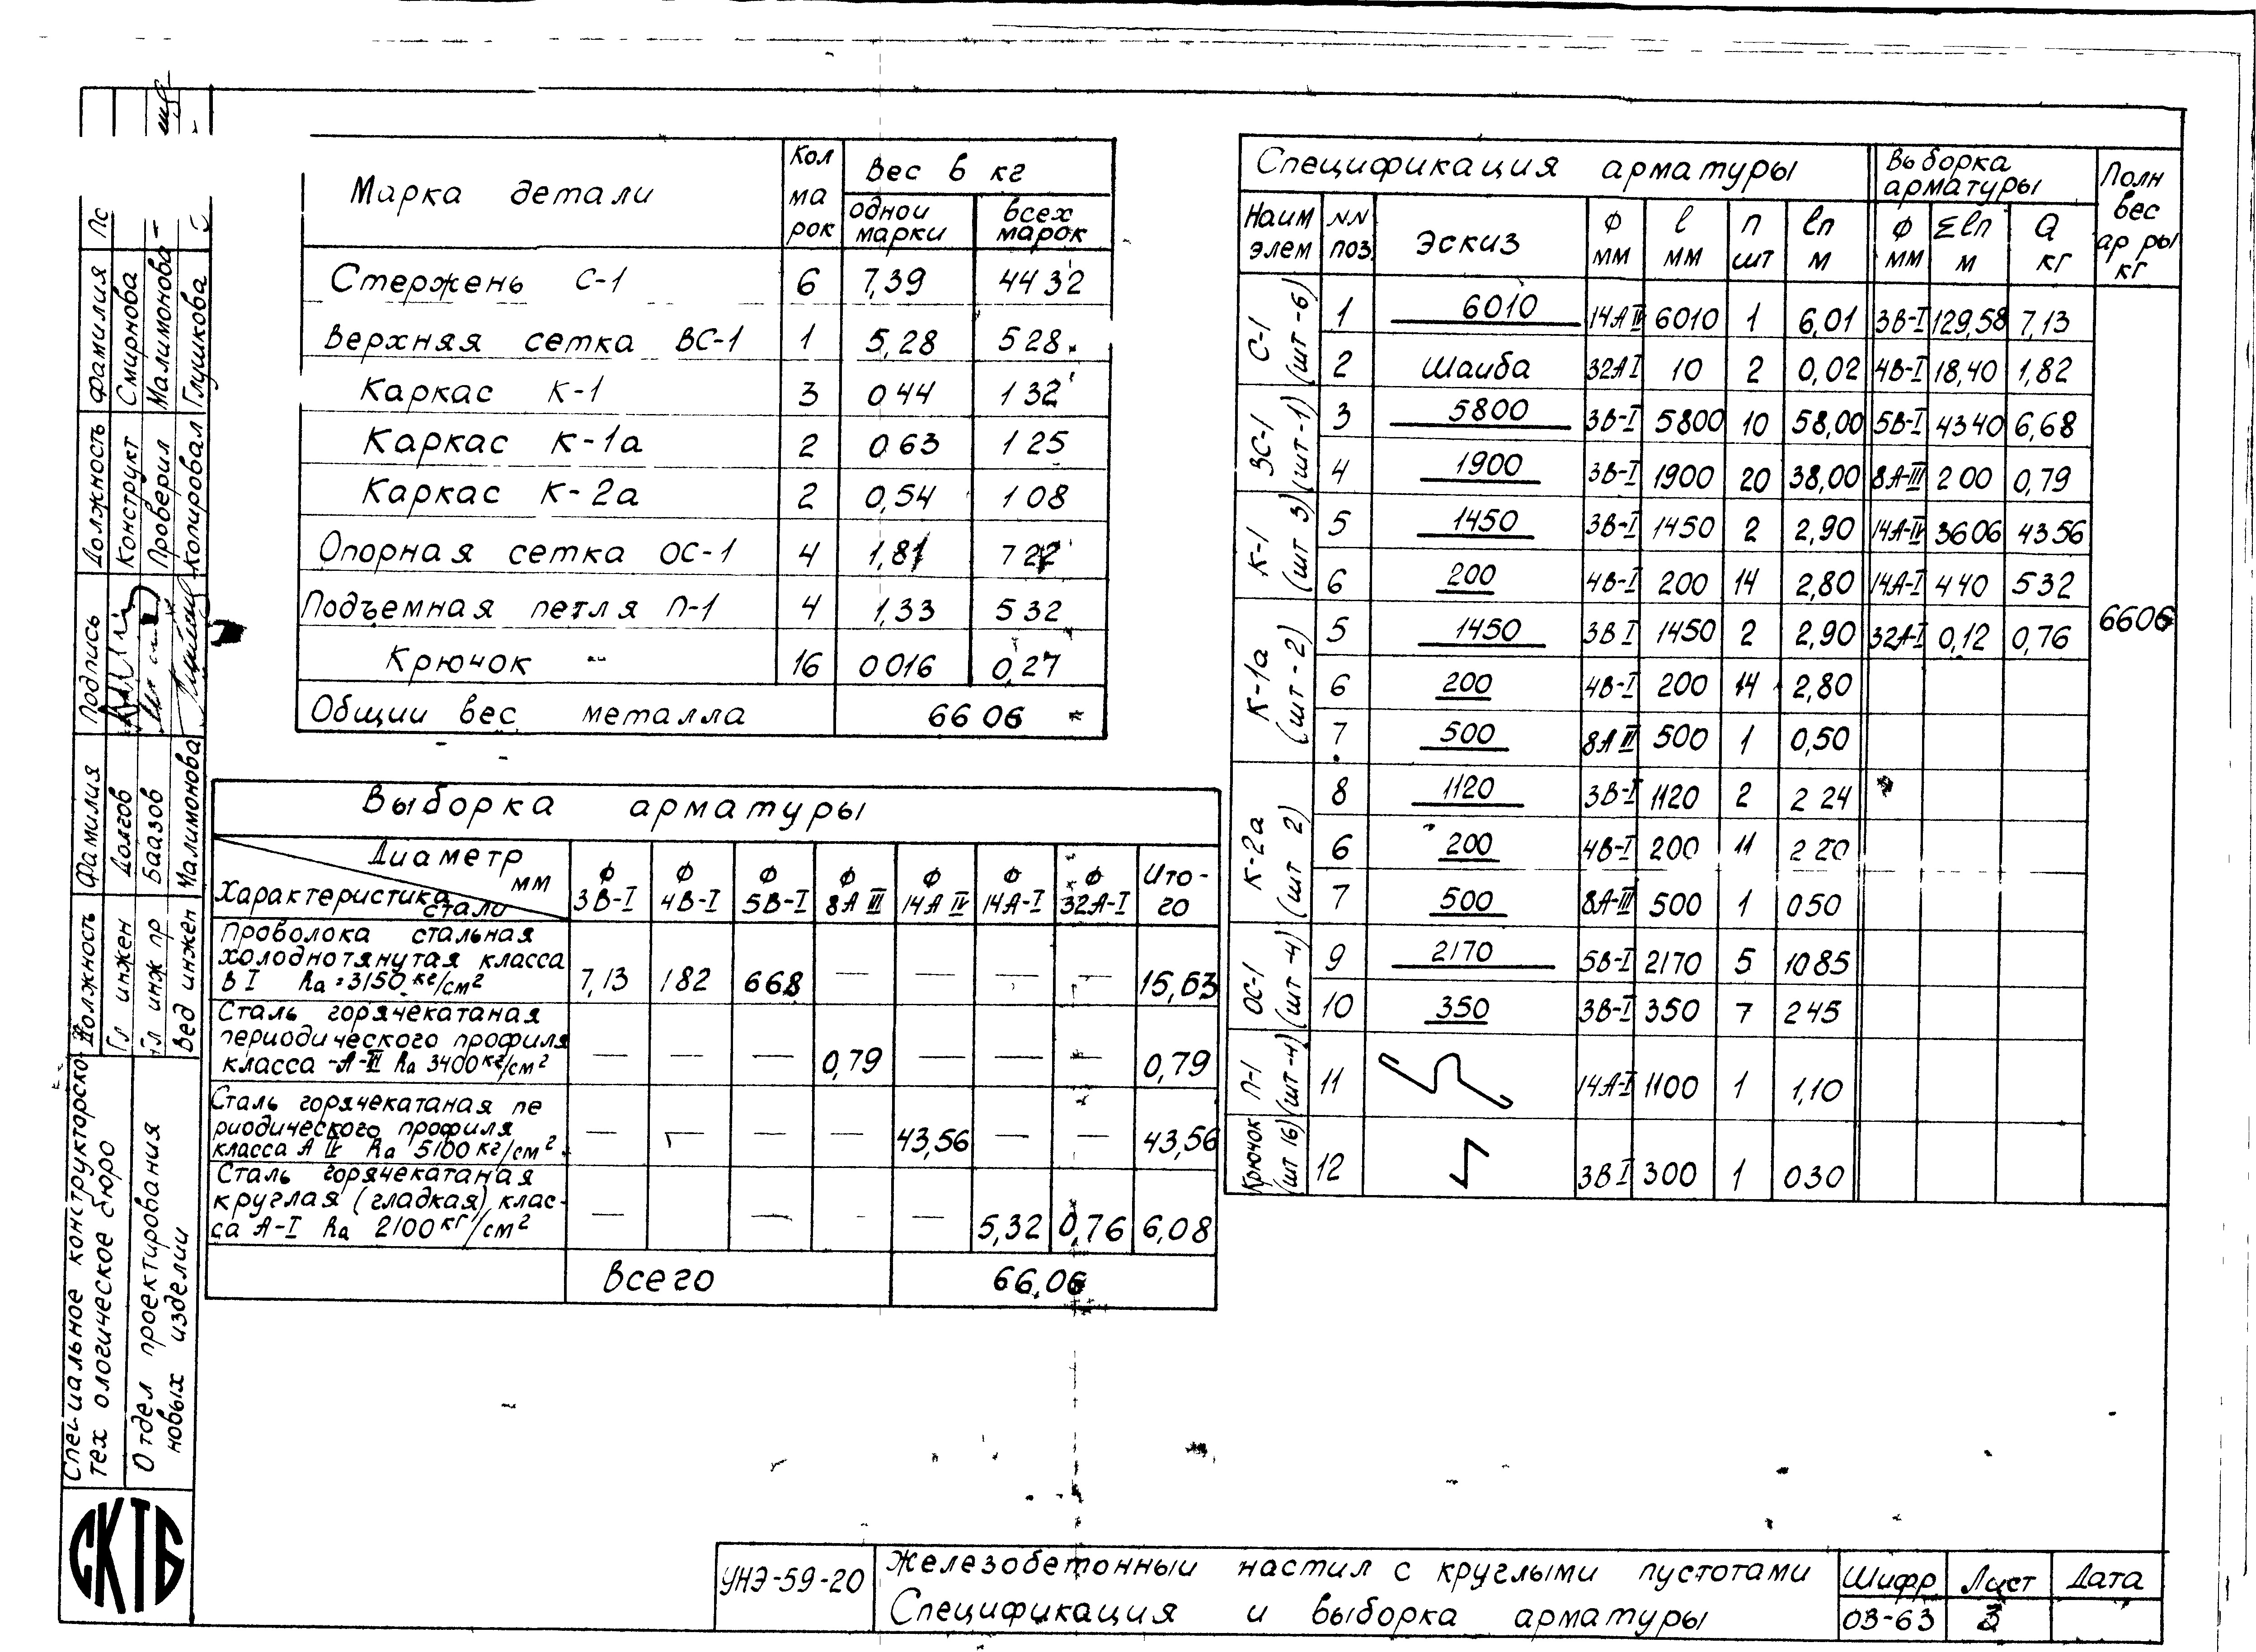 Марка детали
Кол марок
Вес в кг
одной марки
всех марок
Стержень С-1 6 7,39 44 32
Верхняя сетка ВС-1 1 5,28 5 28
Каркас К-1 3 0 44 1 32
Каркас К-1а 2 0 63 1 25
Каркас К-2а 2 0,54 1 08
Опорная сетка ОС-1 4 1,81 7 22
Подъемная петля П-1 4 1,33 5 32
Крючок -"- 16 0 016 0,27
Общий вес металла 66 06
Выборка арматуры
Диаметр мм
Характеристика стали
ф 3В-I ф 4В-I ф 5В-I ф 8А III ф 14А IV ф 14А-I ф 32А-I Ито-го
Проволока стальная
холоднотянутая класса
В I Ra=3150 кг/см² 7,13 1 82 6 68 — — — — 15,63
Сталь горячекатаная
периодического профиля
класса -А-III Ra 3400 кг/см² — — — 0,79 — — — 0,79
Сталь горячекатаная пе
риодического профиля
класса А IV Ra 5100 кг/см² — — — — 43,56 — — 43,56
Сталь горячекатаная
круглая (гладкая) клас-
са А-I Ra 2100 кг/см² — — — — 5,32 0,76 6,08
Всего 66,06
Спецификация арматуры
Выборка арматуры
Полн вес ар ры кг
Наим элем
NN поз
Эскиз
ф мм
l мм
п шт
lп м
ф мм
Σlп м
Q кг
С-1 (шт-6)
1 6010 14А IV 6010 1 6,01 3В-I 129,58 7,13
2 Шайба 32А I 10 2 0,02 4В-I 18,40 1,82
ВС-1 (шт-1)
3 5800 3В-I 5800 10 58,00 5В-I 43 40 6,68
4 1900 3В-I 1900 20 38,00 8А-III 2 00 0,79
К-1 (шт 3)
5 1450 3В-I 1450 2 2,90 14А-IV 36 06 43 56
6 200 4В-I 200 14 2,80 14А-I 4 40 5 32
К-1а (шт-2)
5 1450 3В I 1450 2 2,90 32А-I 0,12 0,76
66 06
6 200 4В-I 200 14 2,80
7 500 8А III 500 1 0,50
К-2а (шт 2)
8 1120 3В-I 1120 2 2 24
6 200 4В-I 200 11 2 20
7 500 8А-III 500 1 0 50
ОС-1 (шт-4)
9 2170 5В-I 2170 5 10 85
10 350 3В-I 350 7 2 45
П-1 (шт-4)
11 14А-I 1100 1 1,10
Крючок (шт 16)
12 3В I 300 1 0 30
Должность Фамилия
Конструкт Смирнова
Проверил Малимонова
Копировал Глушкова
Должность Фамилия Подпись
Гл инжен Долгов
Гл инж пр Баазов
Вед инжен Малимонова
Специальное конструкторско-
тех ологическое бюро
Отдел проектирования
новых изделий
СКТБ
УНЭ-59-20
Железобетонный настил с круглыми пустотами
Спецификация и выборка арматуры
Шифр Лист Дата
03-63 3